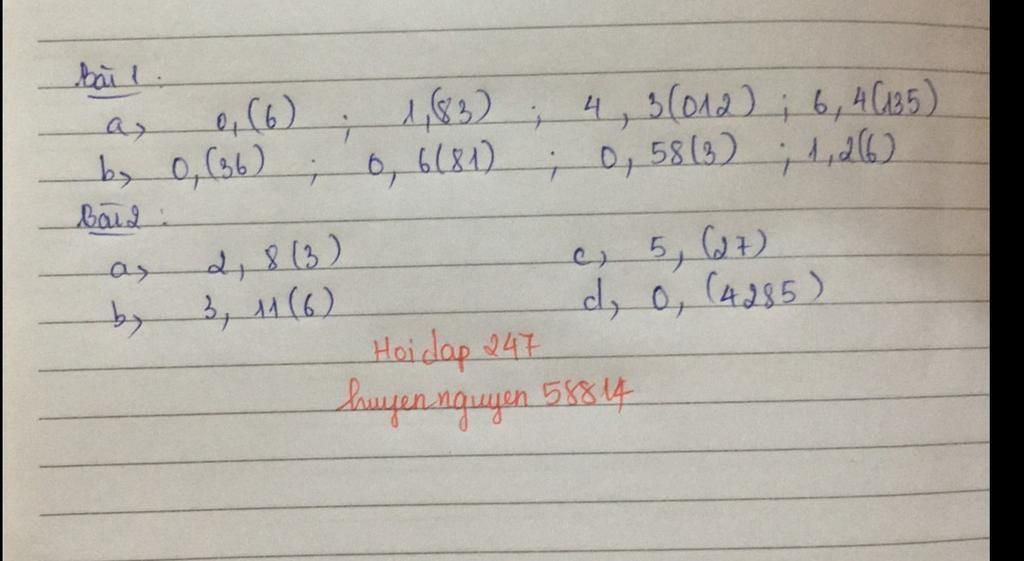 Bài 1 :
a, 0,(6) ; 1,(83) ; 4,3(012) ; 6,4(135)
b, 0,(36) ; 0,6(81) ; 0,58(3) ; 1,2(6)
Bài 2 :
a, 2,8(3) c, 5,(27)
b, 3,11(6) d, 0,(4285)
Hoidap 247
huyennguyen 58814